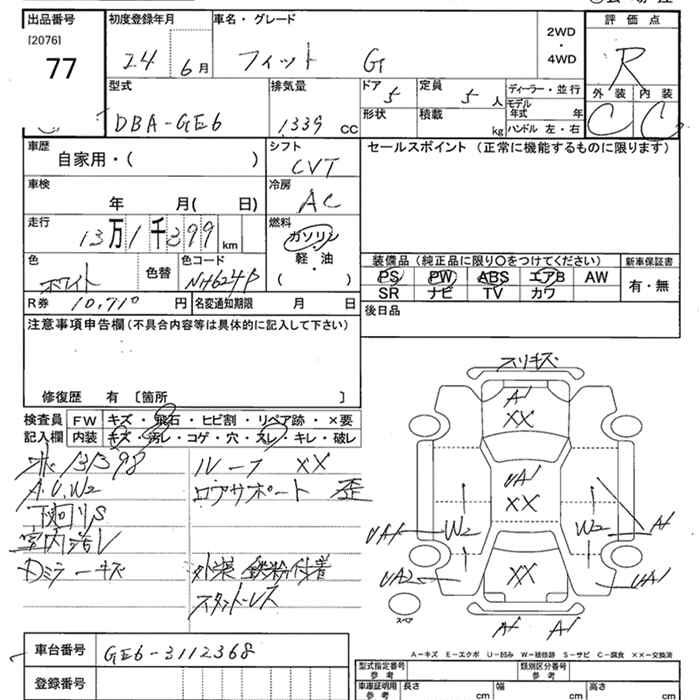 出品番号 初度登録年月 車名・グレード 2WD・4WD 評価点
[2076]
77 24 6月 フィット G R
型式 排気量 ドア 5 定員 5人 ディーラー・並行 外装 内装
DBA-GE6 1339 CC 形状 積載 kg モデル年式 年 C C
ハンドル 左・右
車歴 自家用・( ) シフト CVT セールスポイント (正常に機能するものに限ります)
車検 年 月( 日) 冷房 AC
走行 13万1千399 km 燃料 ガソリン 軽・油 ( )
装備品 (純正品に限り○をつけてください) 新車保証書
色 ホワイト 色替 色コード NH624P PS PW ABS エアB AW 有・無
R券 10,710 円 名変通知期限 月 日 SR ナビ TV カワ
注意事項申告欄 (不具合内容等は具体的に記入して下さい) 後日品
修復歴 有 〔箇所 〕
検査員 FW キズ・飛石・ヒビ割・リペア跡・×要
記入欄 内装 キズ・汚レ・コゲ・穴・スレ・キレ・破レ
131398 ルーフ XX
A.U.W2 コアサポート 歪
下回りS
室内汚レ
Dミラーキズ 外装 鉄粉付着
スタットレス
スリキズ
A1
XX
UA1
XX
W2 W2 A1
UA1
UA2 XX UA1
スペア
A1 A1
A-キズ E-エクボ U-凹み W-補修跡 S-サビ C-腐食 XX-交換済
車台番号 GE6-3112368 型式指定番号 参考 類別区分番号 参考
登録番号 車庫証明用 参考 長さ cm 幅 cm 高さ cm